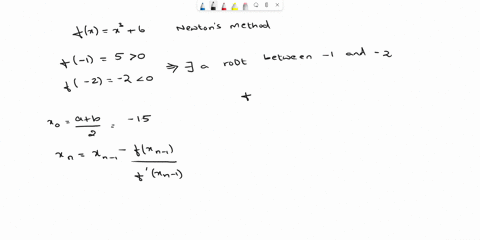 f(x) = x³ + 6 Newton's Method
f(-1) = 5 > 0
f(-2) = -2 < 0 ⇒ ∃ a root between -1 and -2
f
x₀ = a+b/2 = -15
xₙ = xₙ₋₁ - f(xₙ₋₁)/f'(xₙ₋₁)